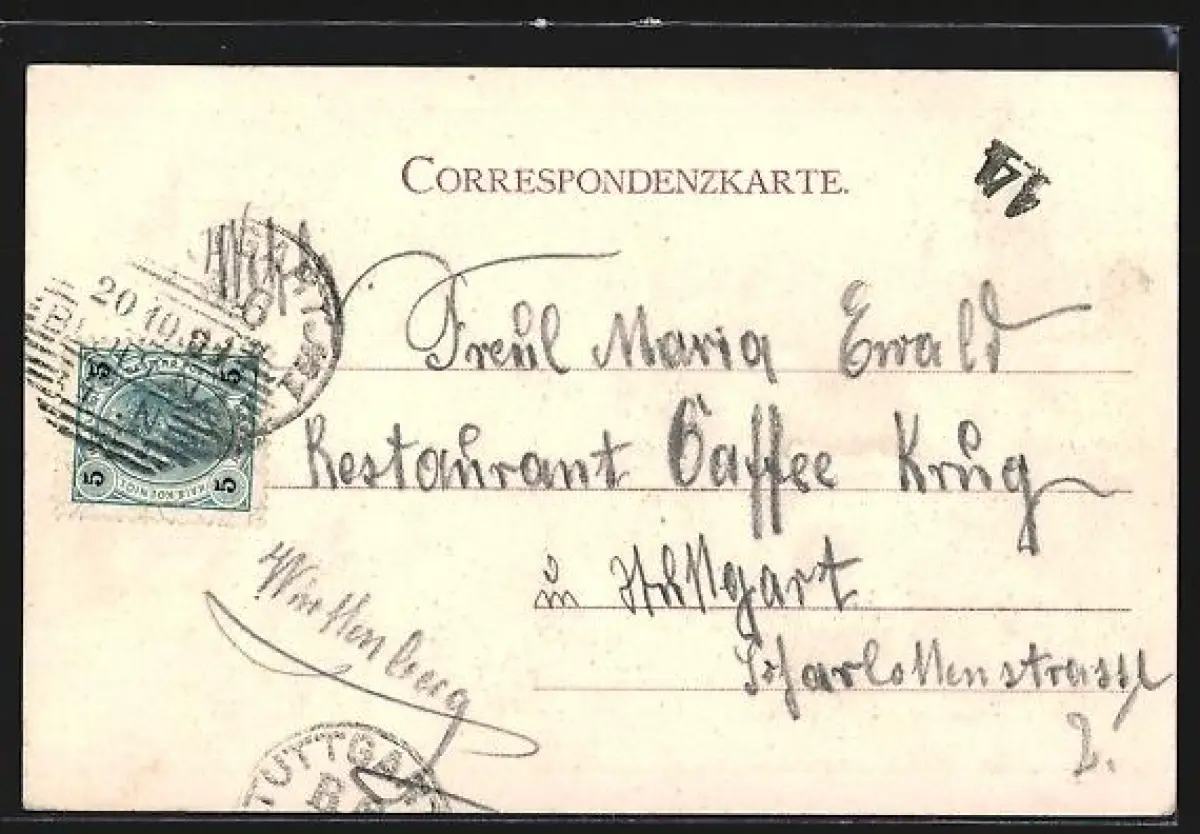 CORRESPONDENZKARTE.
14
20 10 01
5 5
5 5
Freül Maria Ewald
Restaurant Caffee Krug
in Stuttgart
Württenberg
Scharlottenstrasse
2.
STUTTGART